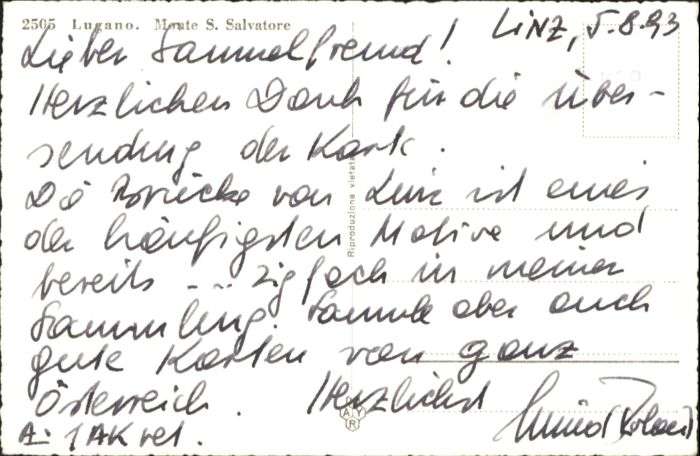 2505 Lugano. Monte S. Salvatore
LiNZ, 5.8.93
Lieber Sammelfreund!
Herzlichen Dank für die Über-
sendung der Karte.
Die Brücke von Linz ist eines
der häufigsten Motive und
bereits -...zigfach in meiner
Sammlung. Sammle aber auch
gute Karten von ganz
Österreich. Herzlichst
A: 1 AK ret.
Riproduzione vietata